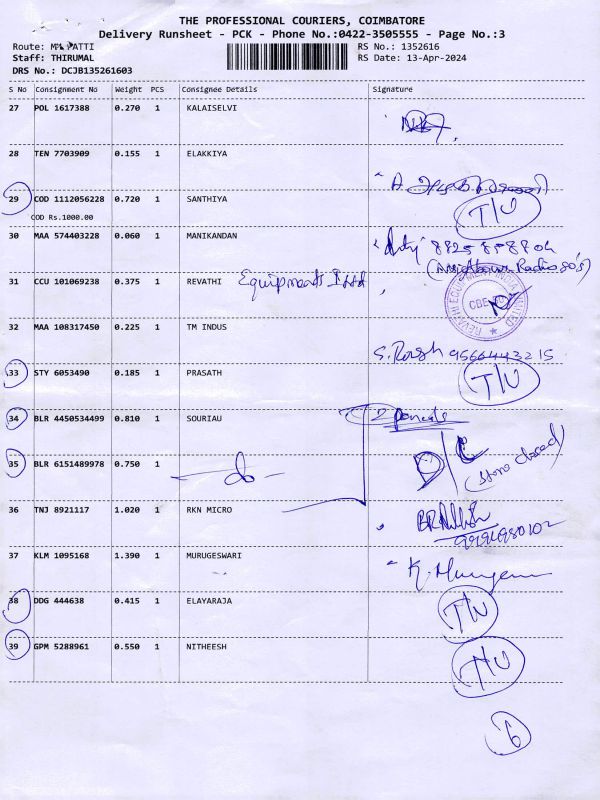 THE PROFESSIONAL COURIERS, COIMBATORE
Delivery Runsheet - PCK - Phone No.:0422-3505555 - Page No.:3
Route: PATTI RS No.: 1352616
Staff: THIRUMAL RS Date: 13-Apr-2024
DRS No.: DCJB135261603
S No Consignment No Weight PCS Consignee Details Signature
27 POL 1617388 0.270 1 KALAISELVI
28 TEN 7703909 0.155 1 ELAKKIYA
A.
29 COD 1112056228 0.720 1 SANTHIYA T/U
COD Rs.1000.00
30 MAA 574403228 0.060 1 MANIKANDAN
31 CCU 101069238 0.375 1 REVATHI Equipments I Ltd
REVATHI EQUIPMENT INDIA LIMITED
CBE
32 MAA 108317450 0.225 1 TM INDUS
9566443215
33 STY 6053490 0.185 1 PRASATH T/U
34 BLR 4450534499 0.810 1 SOURIAU 2 parcels
D/C
35 BLR 6151489978 0.750 1 -do- (store closed)
36 TNJ 8921117 1.020 1 RKN MICRO
37 KLM 1095168 1.390 1 MURUGESWARI
38 DDG 444638 0.415 1 ELAYARAJA T/U
39 GPM 5288961 0.550 1 NITHEESH T/U
6